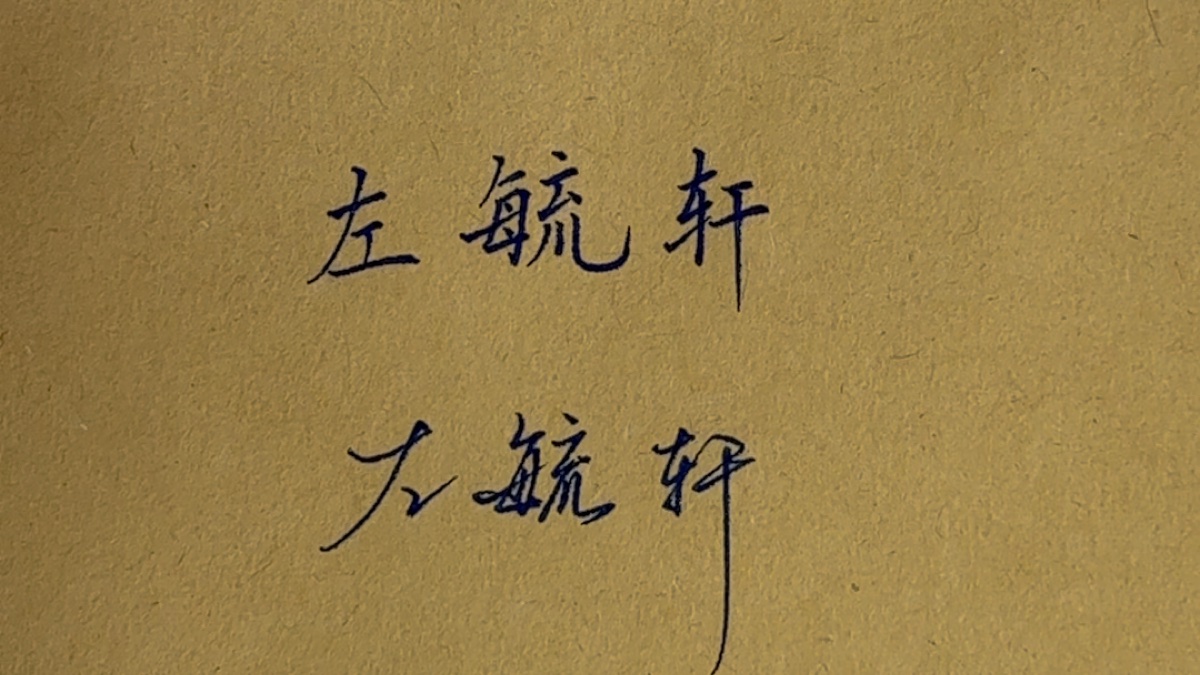 左毓轩
左毓轩